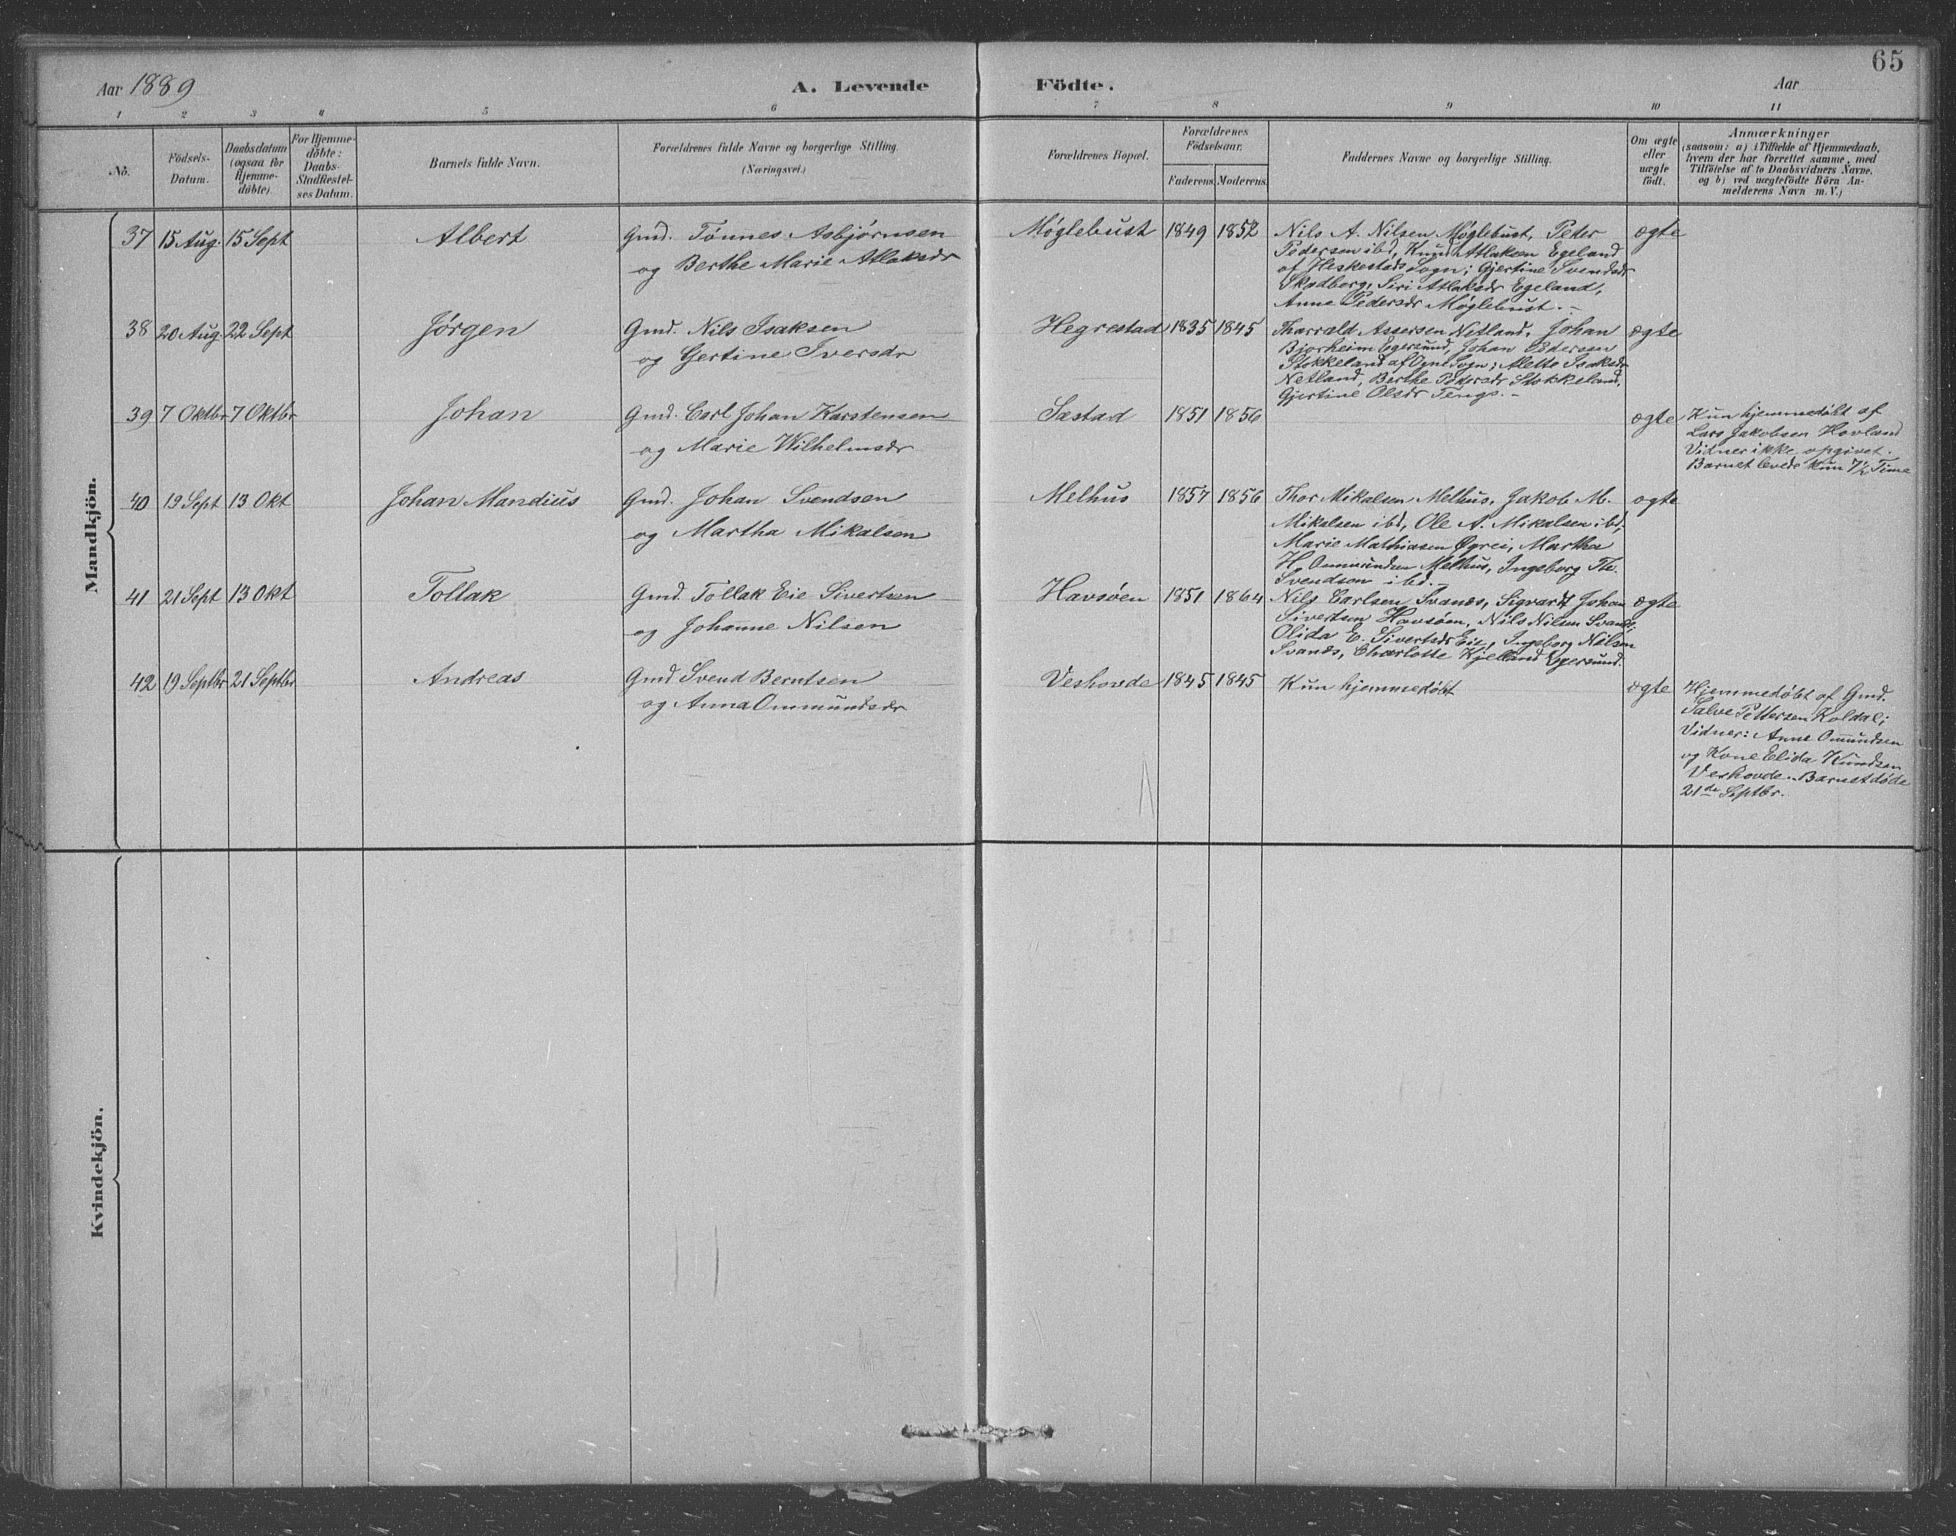 65
Aar 1889 A. Levende Födte. Aar
1 2 3 4 5 6 7 8 9 10 11
No. Födsels-Datum. Daabsdatum (ogsaa for Hjemmedöbte). For Hjemmedöbte: Daabs-Stadfæstelses Datum. Barnets fulde Navn. Forældrenes fulde Navne og borgerlige Stilling. (Næringsvei.) Forældrenes Bopæl. Forældrenes Födselsaar. Faderens. Moderens. Faddernes Navne og borgerlige Stilling. Om ægte eller uægte födt. Anmærkninger (saasom: a) i Tilfælde af Hjemmedaab, hvem der har forrettet samme, med Tilföielse af to Daabsvidners Navne, og b) ved uægtefödte Börn Anmelderens Navn m. V.)
Mandkjön.
37 15 Aug. 15 Sept Albert Gmd. Tønnes Asbjørnsen Møglebust 1849 1852 Nils A. Nilsen Møglebust, Peder ægte
og Berthe Marie Atlaksdr Pedersen ibd, Knud Atlaksen Egeland
af Heskestads Sogn; Gjertine Svendsdr
Skadberg, Siri Atlaksdr Egeland,
Anne Pedersdr Møglebust.
38 20 Aug. 22 Sept Jørgen Gmd. Nils Isaksen Hegrestad 1835 1845 Tharrald Assersen Netland, Johan ægte
og Gertine Iversdr Bjorheim Egersund, Johan Pedersen
Stokkeland af Ogne Sogn; Alette Isaksdr
Netland, Berthe Pedersdr Stokkeland,
Gjertine Olsdr Tengs.
39 7 Oktbr 7 Oktbr Johan Gmd. Carl Johan Karstensen Sæstad 1851 1856 ægte Kun hjemmedøbt af
og Marie Wilhelmsdr Lars Jakobsen Hovland
Vidner ikke opgivet.
Barnet levede kun 7½ Time
40 19 Sept 13 Okt Johan Mandius Gmd. Johan Svendsen Melhus 1857 1856 Thor Mikalsen Melhus, Jakob M. ægte
og Martha Mikalsen Mikalsen ibd, Ole A. Mikalsen ibd;
Marie Mathiasen Øgrei, Martha
H. Ommundsen Melhus, Ingeborg Th.
Svendsen ibd.
41 21 Sept 13 Okt Tollak Gmd. Tollak Eie Sivertsen Havsøen 1851 1864 Nils Carlsen Svanæs, Sigvardt Johan ægte
og Johanne Nilsen Sivertsen Havsøen, Nils Nilsen Svanæs;
Olida E. Sivertsdr Eie, Ingeborg Nilsen
Svanæs, Charlotte Kjelland Egersund.
42 19 Septbr 21 Septbr Andreas Gmd Svend Berntsen Veshovde 1845 1845 Kun hjemmedøbt ægte Hjemmedøbt af Gmd.
og Anna Ommundsdr Salve Pettersen Koldal;
Vidner: Anne Omundsen
og Kone Elida Knudsen
Veshovde. Barnet døde
21de Septbr.
Kvindekjön.